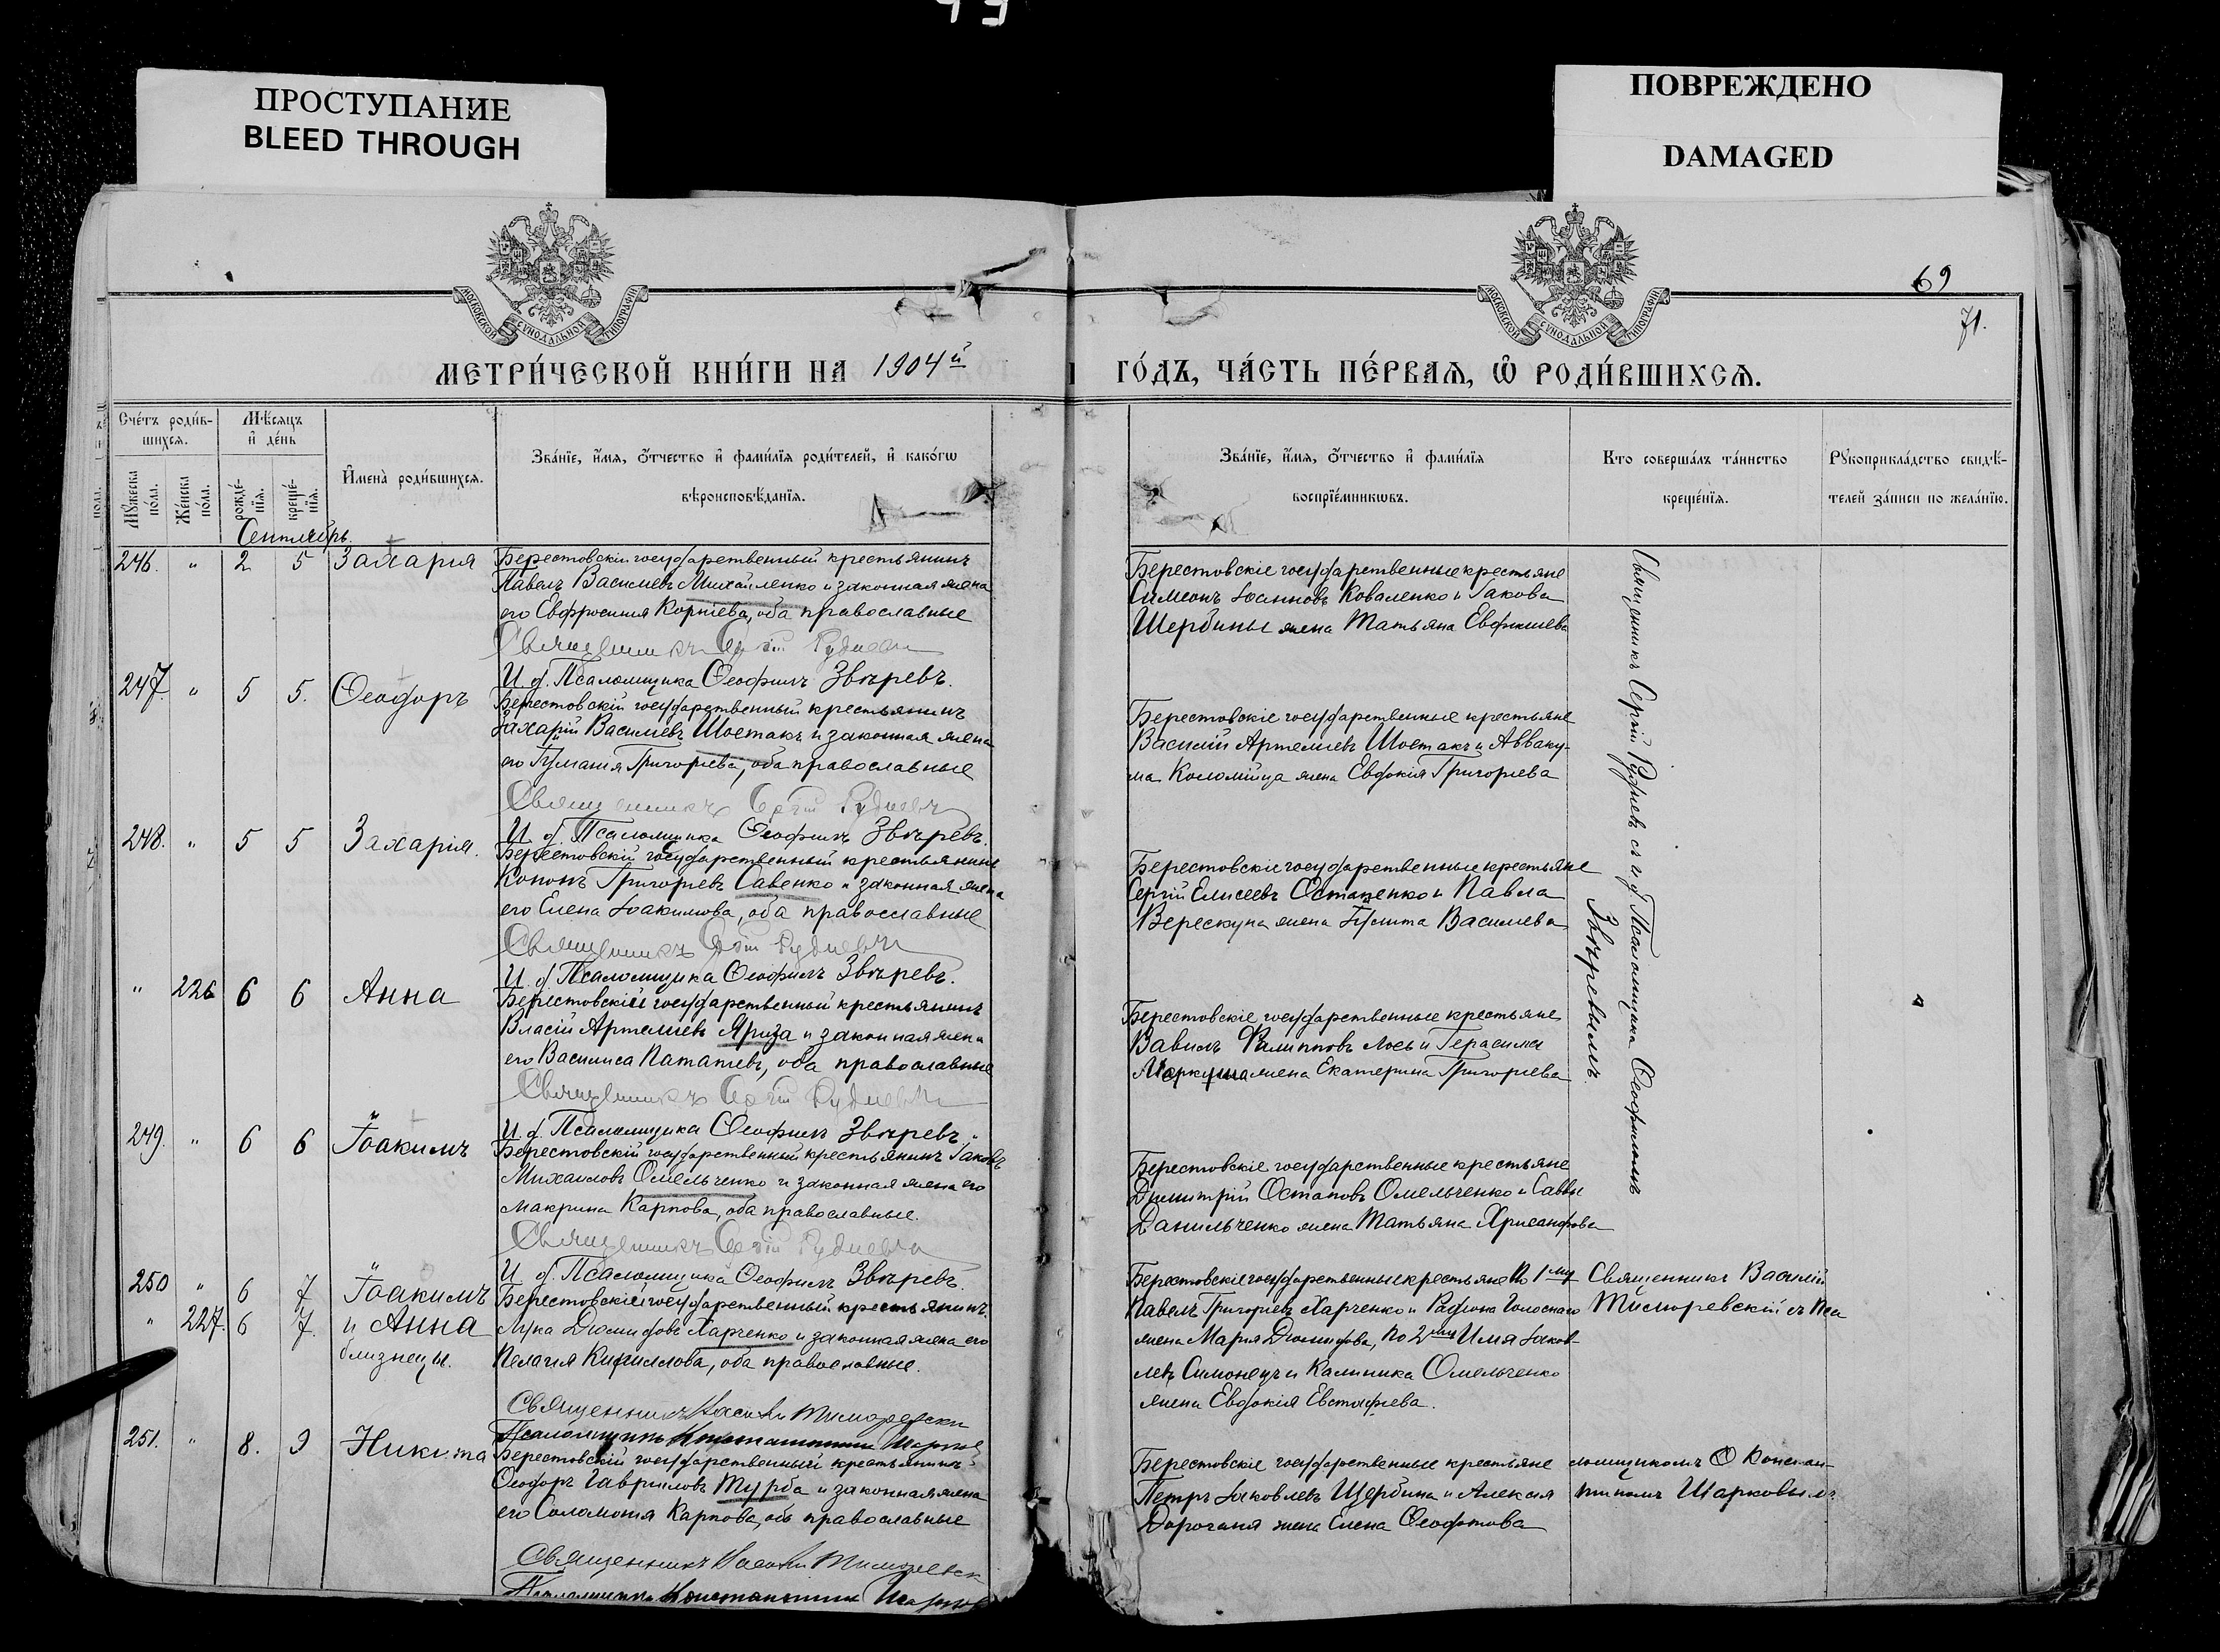 ПРОСТУПАНИЕ
BLEED THROUGH
ПОВРЕЖДЕНО
DAMAGED
МОСКОВСКОЙ СѴНОДАЛЬНОЙ ТИПОГРАФІИ
МОСКОВСКОЙ СѴНОДАЛЬНОЙ ТИПОГРАФІИ
69
71.
МЕТРИ́ЧЕСКОЙ КНИ́ГИ НА 1904й
ГО́ДЪ, ЧА́СТЬ ПЕ́РВАѦ, Ѡ҆ РОДИ́ВШИХСѦ.
Сче́тъ роди́в-
шихсѧ.
Мꙋ́жеска по́ла.
Же́нска по́ла.
Мѣ́сяцъ
и҆ де́нь
рожде́-
нїѧ.
креще́-
нїѧ.
И҆мена̀ роди́вшихсѧ.
Зва́нїе, и҆́мѧ, ѻ҆́тчество и҆ фами́лїѧ роди́телей, и҆ како́гѡ
вѣроисповѣ́данїѧ.
Зва́нїе, и҆́мѧ, ѻ҆́тчество и҆ фами́лїѧ
воспрїе́мникѡвъ.
Кто соверша́лъ та́инство
креще́нїѧ.
Рꙋкоприкла́дство свидѣ́-
телей за́писи по жела́нїю.
Сентябрь.
246. " 2 5 Захарія
Берестовскій государственный крестьянинъ
Павелъ Василіевъ Михайленко и законная жена
его Евфросинія Корніева, оба православные
Священникъ Сергій Рудневъ
И. д. Псаломщика Ѳеофилъ Звѣревъ.
Берестовскіе государственные крестьяне
Симеонъ Іоанновъ Коваленко и Іакова
Щербины жена Татьяна Евфиміева
247. " 5 5. Ѳеодоръ
Берестовскій государственный крестьянинъ
Захарій Василіевъ Шостакъ и законная жена
его Іуліанія Григоріева, оба православные
Священникъ Сергій Рудневъ
И. д. Псаломщика Ѳеофилъ Звѣревъ.
Берестовскіе государственные крестьяне
Василій Артеміевъ Шостакъ и Авваку-
ма Коломійца жена Евдокія Григоріева
248. " 5 5 Захарія.
Берестовскій государственный крестьянинъ
Кононъ Григоріевъ Савенко и законная жена
его Елена Іоакимова, оба православные
Священникъ Сергій Рудневъ
И. д. Псаломщика Ѳеофилъ Звѣревъ.
Берестовскіе государственные крестьяне
Сергій Елисеевъ Остапенко и Павла
Верескуна жена Іулита Василіева
" 226 6 6 Анна
Берестовскій государственный крестьянинъ
Власій Артеміевъ Яриза и законная жена
его Василиса оба православные
Священникъ Сергій Рудневъ
И. д. Псаломщика Ѳеофилъ Звѣревъ.
Берестовскіе государственные крестьяне
Вавилъ Филипповъ Лось и Герасима
жена Екатерина Григоріева
249. " 6 6 Іоакимъ
Берестовскій государственный крестьянинъ Іаковъ
Михаиловъ Омельченко и законная жена его
Макрина Карпова, оба православные.
Священникъ Сергій Рудневъ
И. д. Псаломщика Ѳеофилъ Звѣревъ.
Берестовскіе государственные крестьяне
Димитрій Остаповъ Омельченко и Саввы
Данильченко жена Татьяна Хрисанфова
Священникъ Сергій Рудневъ съ и д Псаломщика Ѳеофиломъ
Звѣревымъ.
250 " 6 7 Іоакимъ
" 227. 6 7. и Анна
близнецы.
Берестовскій государственный крестьянинъ
Лука Діомидовъ Харченко и законная жена его
Пелагія Кириллова, оба православные.
Священникъ Василій Тиморевскій
Псаломщикъ Константинъ Шарковъ
Берестовскіе государственные крестьяне По 1му
Павелъ Григоріевъ Харченко и Родіона Голоснаго
жена Марія Діомидова, по 2му Илія Іаков-
левъ Симонецъ и Калиника Омельченко
жена Евдокія Евстафіева.
Священникъ Василій
Тиморевскій съ Пса
251. " 8. 9 Никита
Берестовскій государственный крестьянинъ
Ѳеодоръ Гавриловъ Турба и законная жена
его Соломонія Карпова, оба православные
Священникъ Василій Тиморевск
Псаломщикъ Константинъ Шарков
Берестовскіе государственные крестьяне
Петръ Іаковлевъ Щербина и Алексія
жена Елена Ѳеодотова
ломщикомъ Констан-
тиномъ Шарковымъ